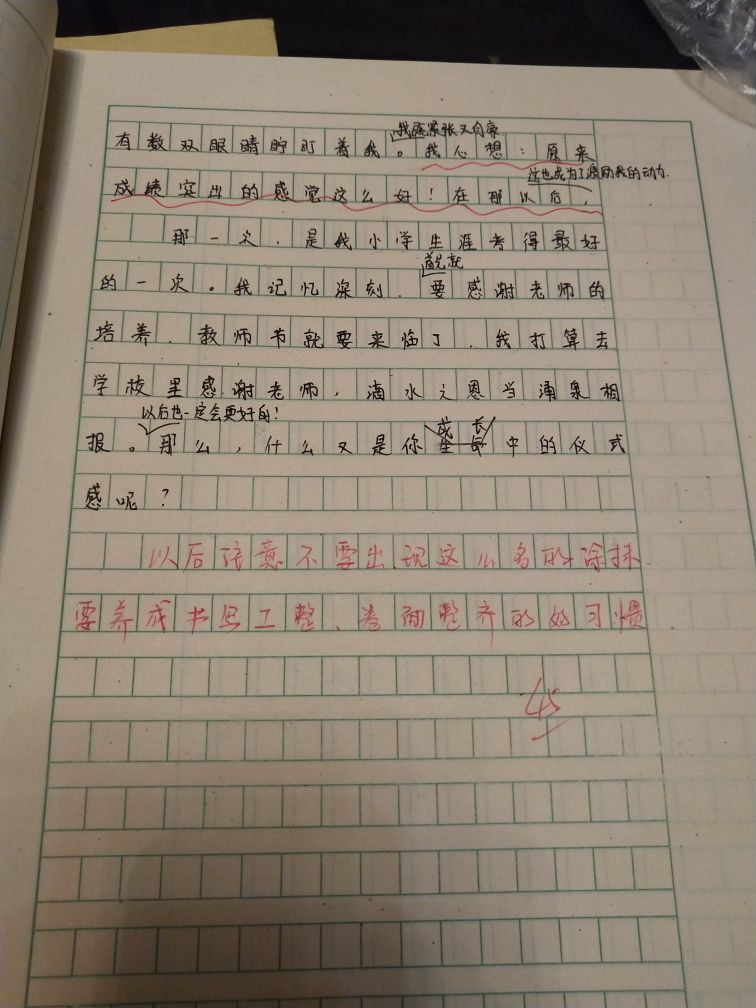 我既紧张又自豪
有数双眼睛盯着我。我心想：原来
这也成为了激励我的动力.
成绩突出的感觉这么好！在那以后，
那一次，是我小学生涯考得最好
首先就
的一次。我记忆深刻，要感谢老师的
培养，教师节就要来临了，我打算去
学校里感谢老师，滴水之恩当涌泉相
以后也一定会更好的！
成长
报。那么，什么又是你生命中的仪式
感呢？
以后注意不要出现这么多的涂抹.
要养成书写工整、卷面整齐的好习惯
45